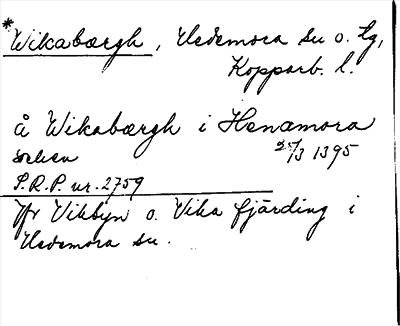 *Wikabærgh, Hedemora sn o. tg,
Kopparb. l.
å Wikabærgh i Henamora
socken 25/3 1395
S.R.P. nr. 2759
Jfr Vikbyn o. Vika fjärding i
Hedemora sn.